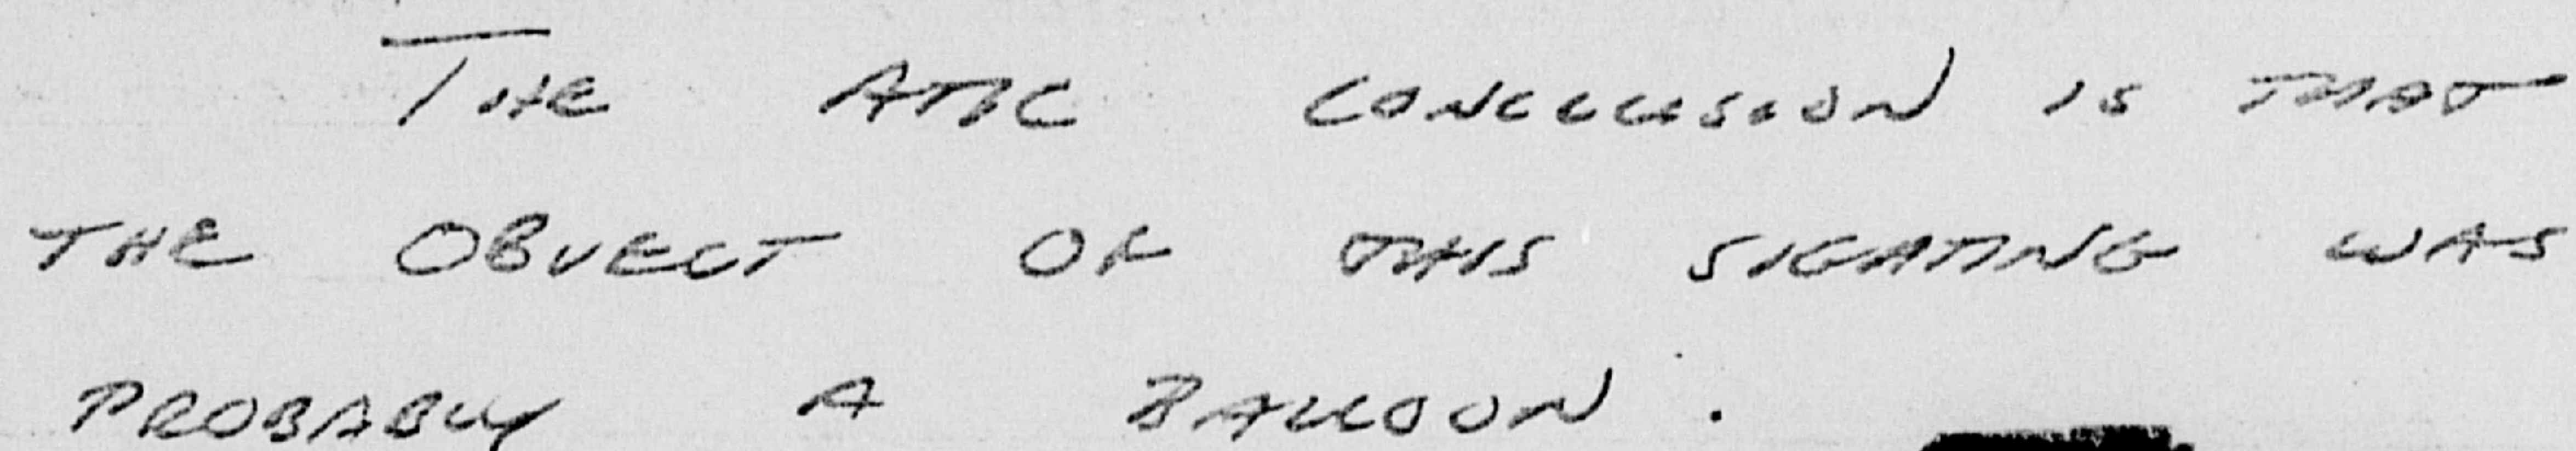 THE ATIC CONCLUSION IS THAT
THE OBJECT OF THIS SIGHTING WAS
PROBABLY A BALLOON.